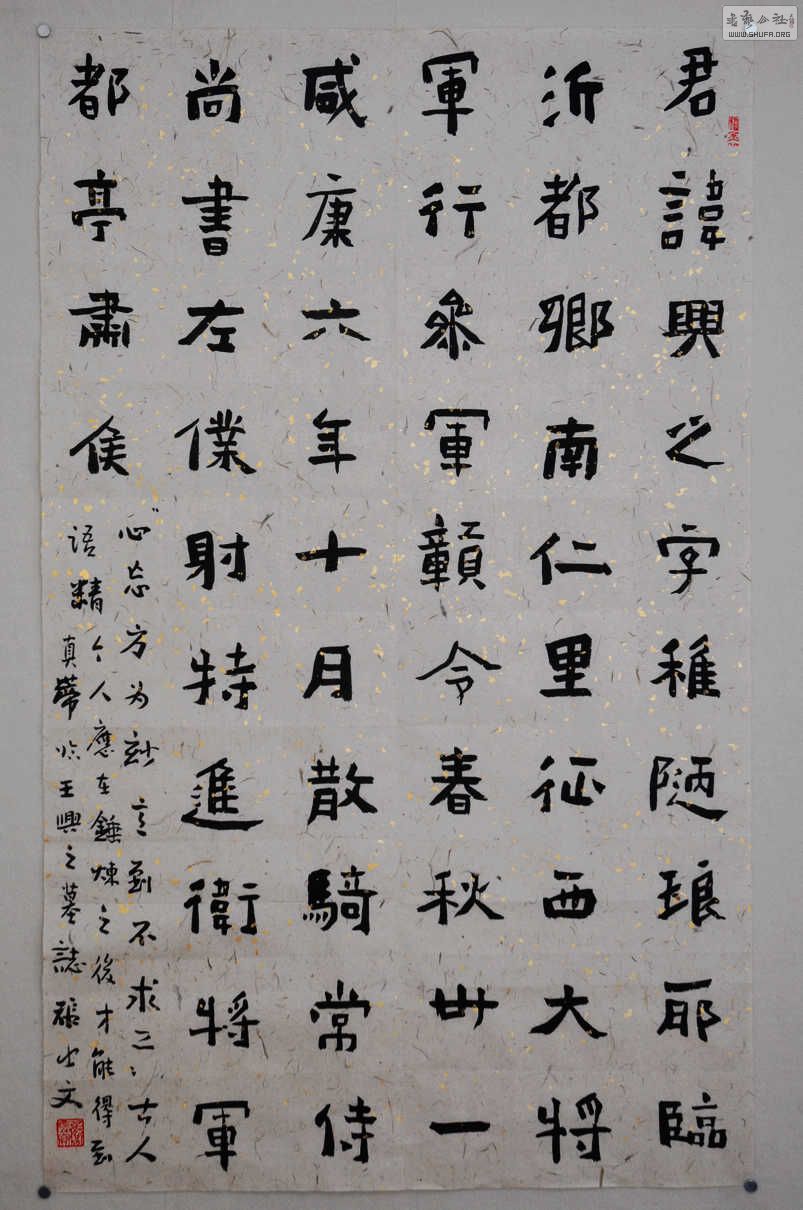 君諱興之字稚陋琅耶臨
沂都鄉南仁里征西大將
軍行參軍贛令春秋卌一
咸康六年十月散騎常侍
尚書左僕射特進衛將軍
都亭肅侯
心忘方为妙言到不求工古人
語精今人應在錘煉之後才能得到
真蒂临王興之墓誌 文
書藝公社
WWW.SHUFA.ORG